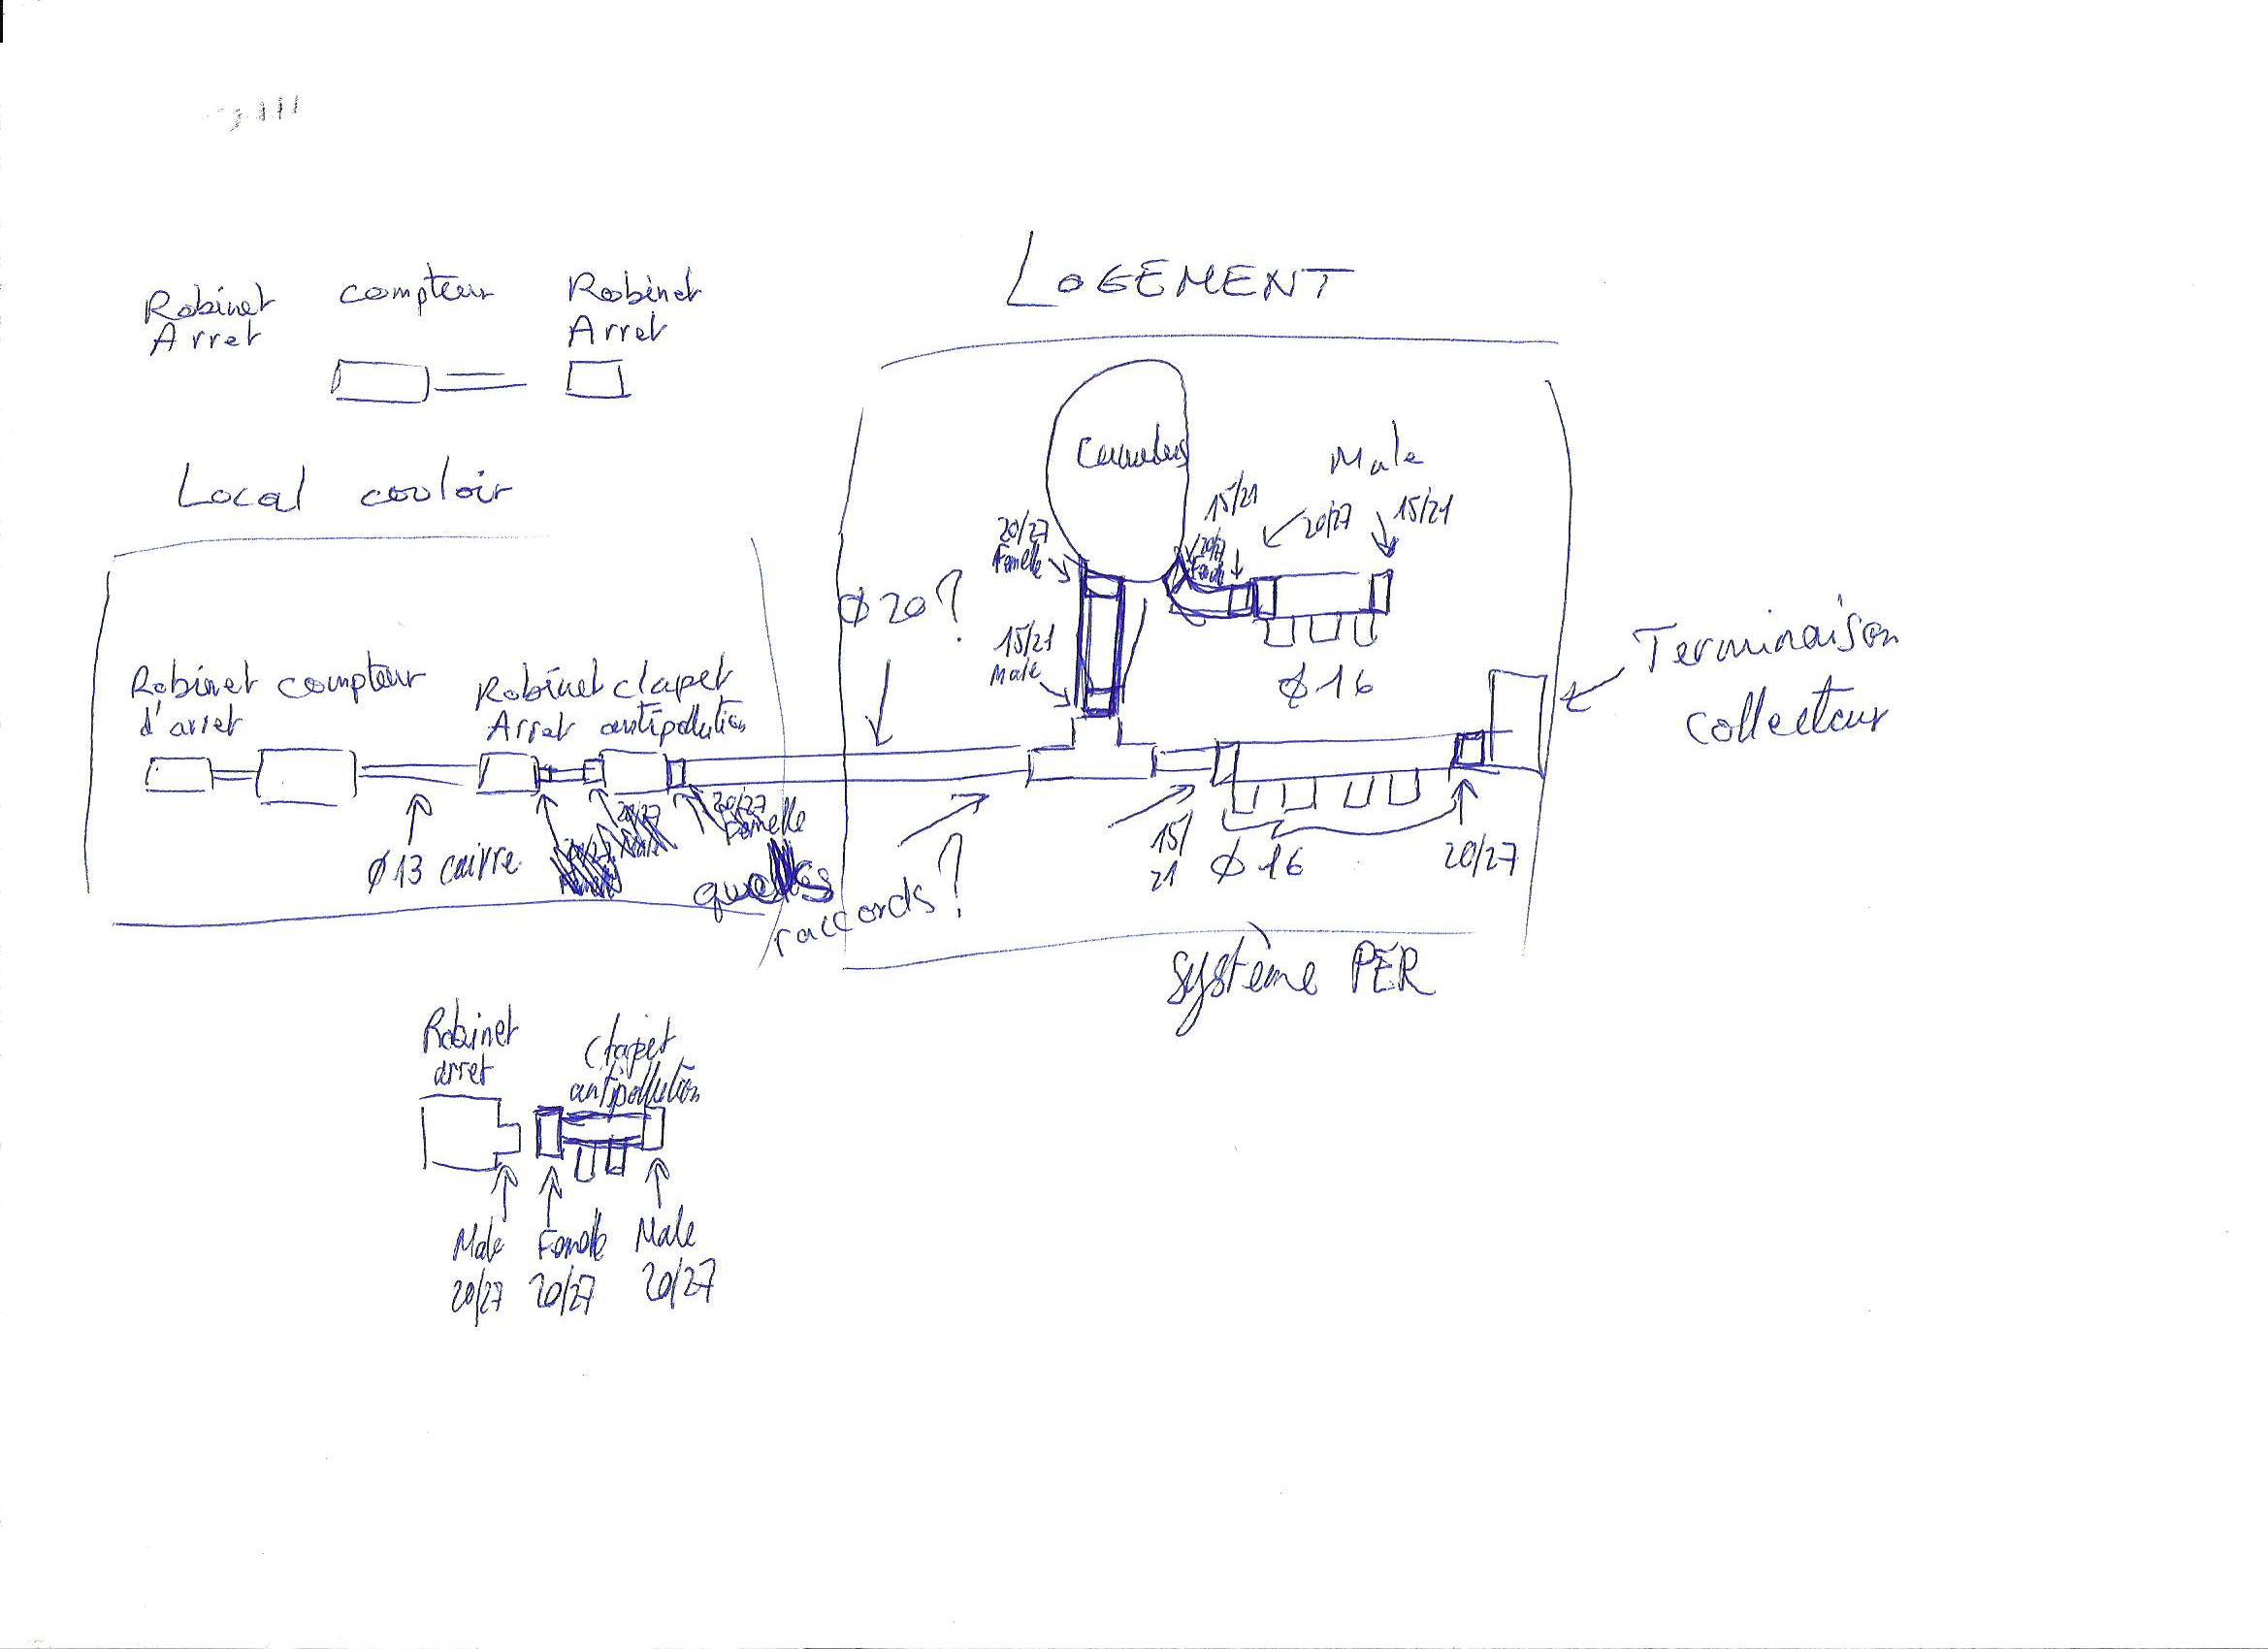 LOGEMENT
Robinet
Arret
compteur
Robinet
Arret
Local couloir
Cumulus
Male
15/21
20/27
15/21
20/27
Femelle
20/27
15/21
Male
Ø 16
Ø 20?
Terminaison
collecteur
Robinet
d'arret
compteur
Robinet
Arret
clapet
antipollution
Ø 13 cuivre
20/27
Femelle
quels
raccords?
15/
21
Ø 16
20/27
système PER
Robinet
arret
Clapet
antipollution
Male
20/27
Femelle
20/27
Male
20/27